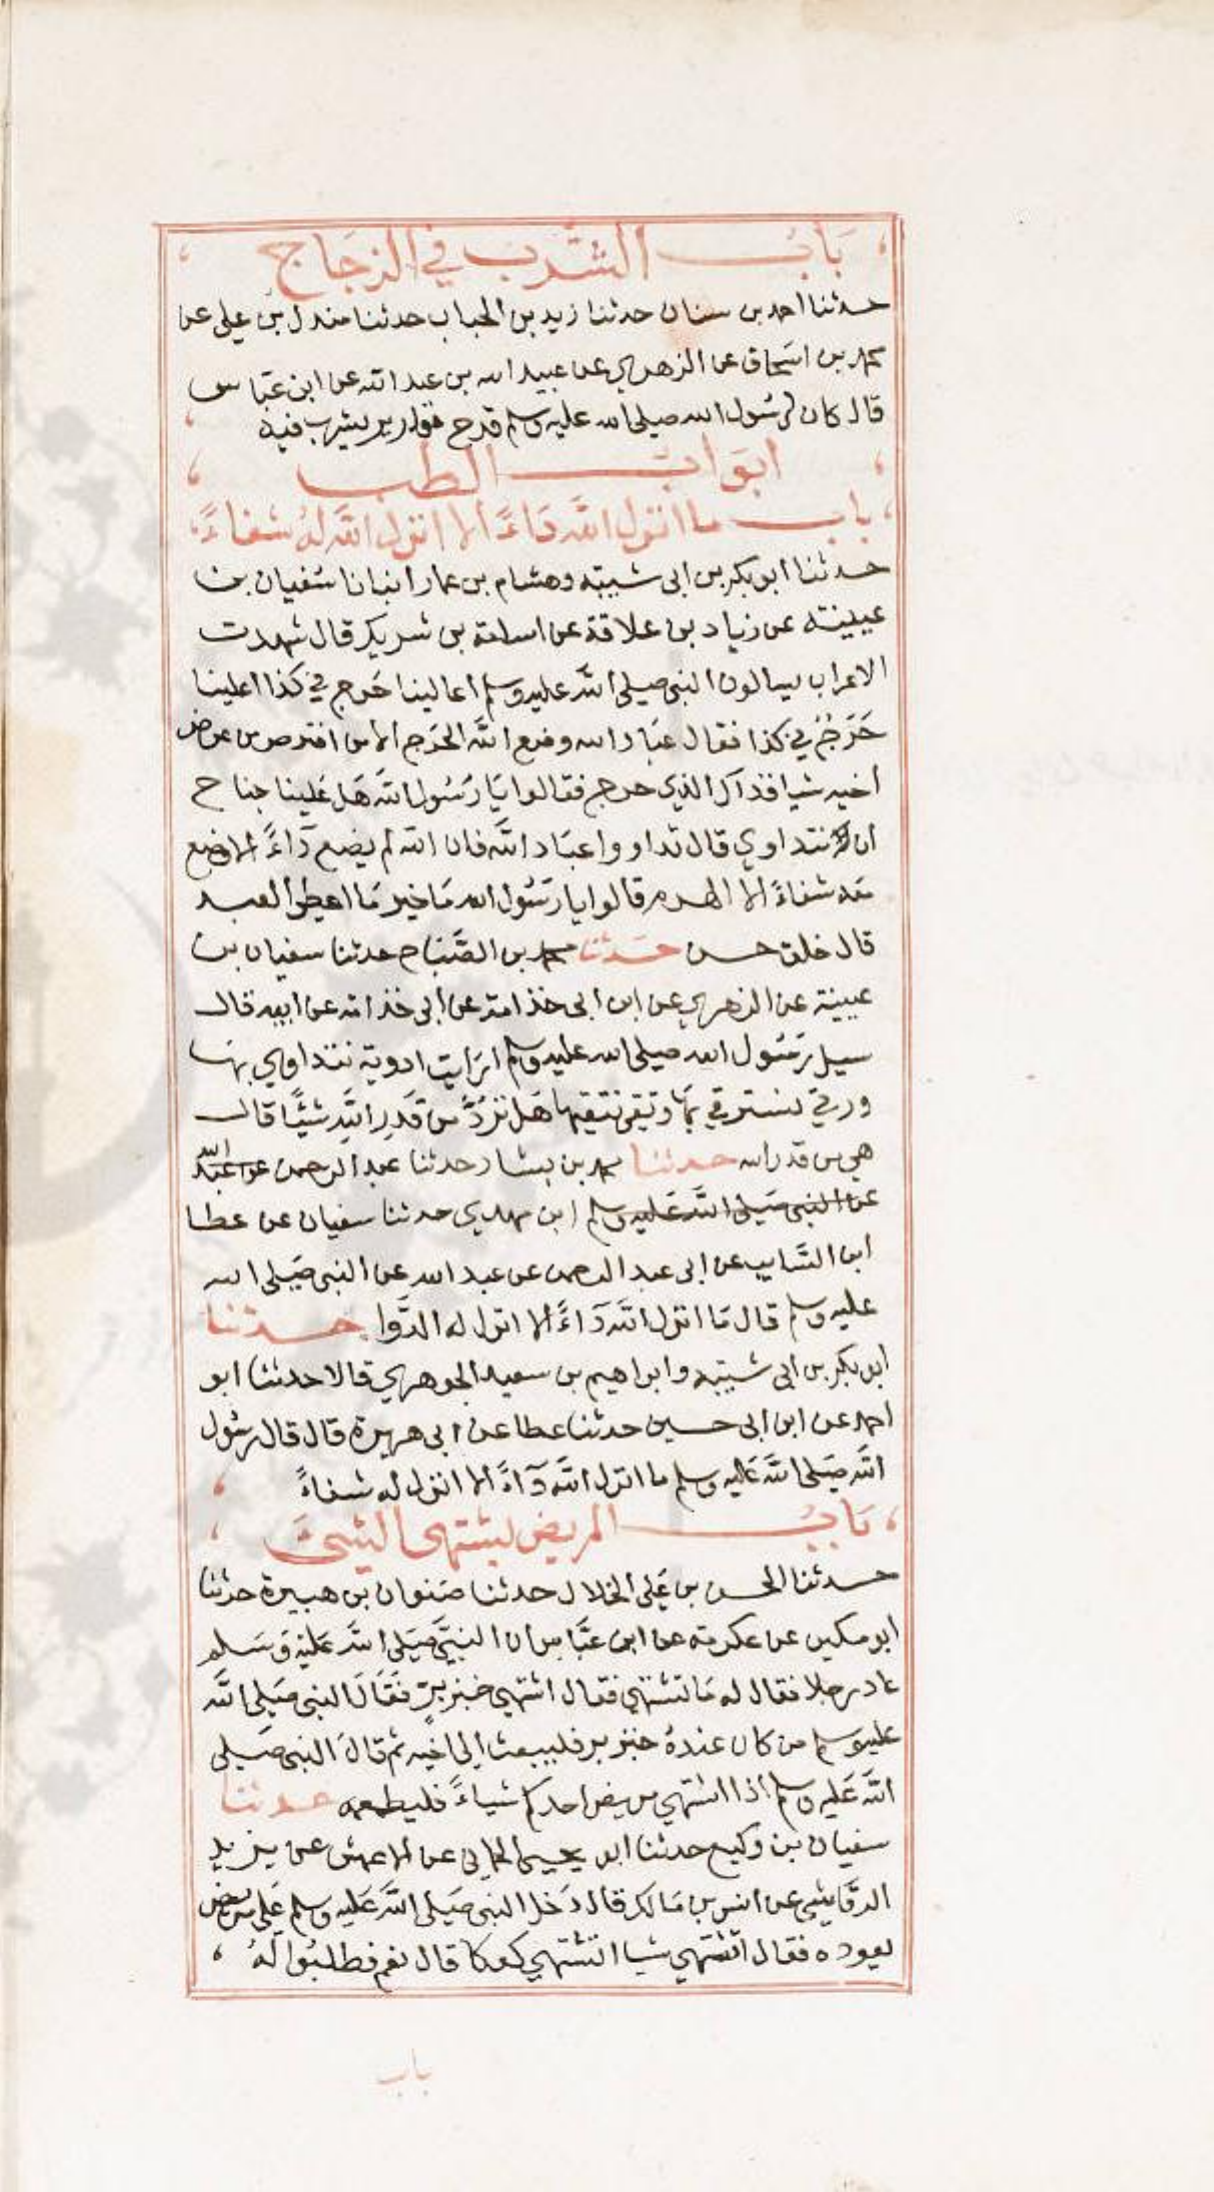 باب الشرب في الزجاج
حدثنا احمد بن سنان حدثنا زيد بن الحباب حدثنا مندل بن علي عن
محمد بن اسحاق عن الزهري عن عبيد الله بن عبد الله عن ابن عباس
قال كان لرسول الله صلى الله عليه وسلم قدح قوارير يشرب فيه
ابواب الطب
باب ما انزل الله داءً الا انزل الله له شفاءً
حدثنا ابو بكر بن ابى شيبه وهشام بن عمار انبانا سفيان بن
عيينه عن زياد بن علاقة عن اسامة بن شريك قال شهدت
الاعراب يسالون النبى صلى الله عليه وسلم اعالينا حرج في كذا اعلينا
حَرَجُ في كذا فقال عباد الله وضع الله الحرج الا من اقترض من عرض
اخيه شيا فذاك الذي حرج فقالوا يا رسول الله هل علينا جناح
ان نتداوي قال تداووا عباد الله فان الله لم يضع داءً الا وضع
معه شفاءً الا الهرم قالوا يا رسول الله ما خير ما اعطى العبد
قال خلق حسن حدثنا محمد بن الصباح حدثنا سفيان بن
عيينة عن الزهري عن ابن ابى خذامة عن ابى خذامه عن ابيه قال
سيل رسول الله صلى الله عليه وسلم ارايت ادوية نتداوي بها
ورقي نسترقي بها وتقى نتقيها هل ترُدُّ من قدر الله شيًا قال
هي من قدر الله حدثنا محمد بن بشار حدثنا عبد الرحمن عن عبد الله
عن النبى صلى الله عليه وسلم ابن مهدي حدثنا سفيان عن عطا
ابن السَّايب عن ابى عبد الرحمن عن عبد الله عن النبى صلى الله
عليه وسلم قال ما انزل الله دَآءً الا انزل له الدَّوا حدثنا
ابو بكر بن ابى شيبه وابراهيم بن سعيد الجوهري قالا حدثنا ابو
احمد عن ابن ابى حسين حدثنا عطا عن ابى هريرة قال قال رسول
الله صلى الله عليه وسلم ما انزل الله دآءً الا انزل له شفاءً
باب المريض يشتهى الشىَ
حدثنا الحسن بن على الخلال حدثنا صفوان بن هبيرة حدثنا
ابو مكين عن عكرمه عن ابن عباس ان النبيَّ صلى الله عليه وسلم
عاد رجلا فقال له ما تشتهي فقال اشتهي خبز برّ فقال النبى صلى الله
عليه وسلم من كان عندهُ خبز بر فليبعث الى اخيه ثم قال النبى صلى
الله عليه وسلم اذا اشتهي مريض احدكم شياءً فليطعمه حدثنا
سفيان بن وكيع حدثنا ابو يحيى الحمانى عن الاعمش عن يزيد
الرقاشى عن انس بن مالك قال دخل النبى صلى الله عليه وسلم على مريض
يعوده فقال اتشتهي شيا اتشتهي كعكا قال نعم فطلبُوا لهُ
باب